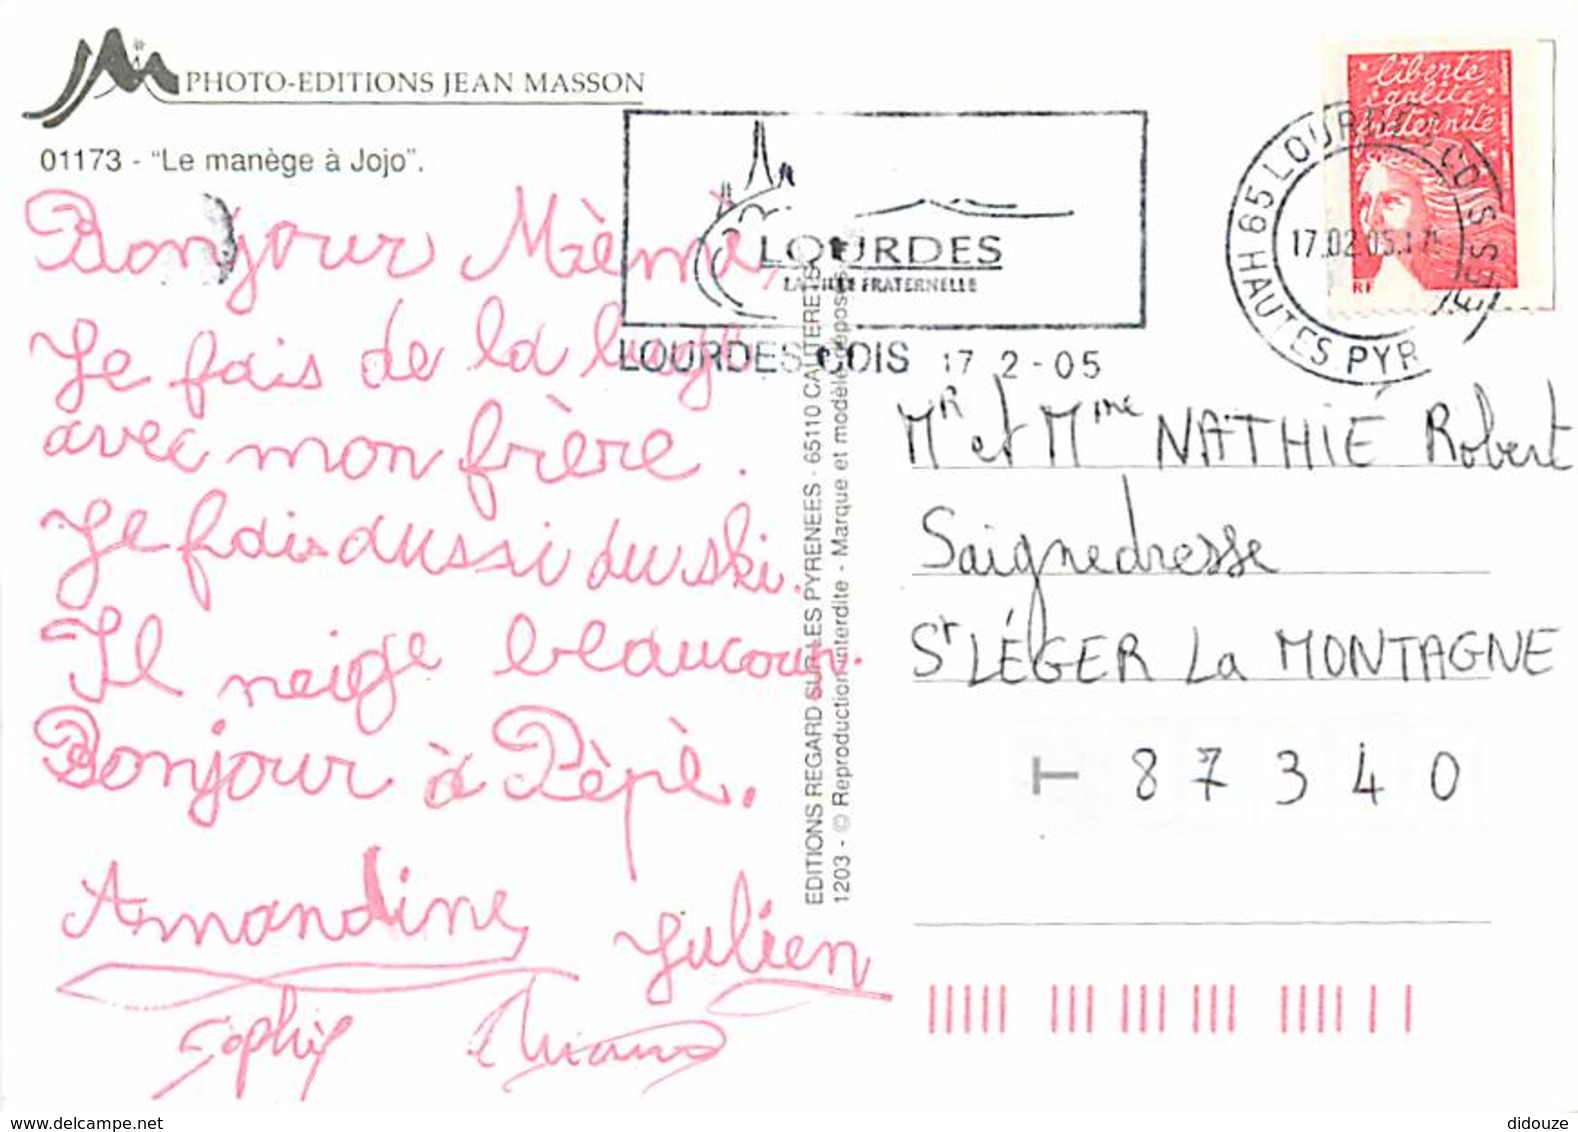 PHOTO-EDITIONS JEAN MASSON
01173 - "Le manège à Jojo".
Bonjour Mèmé,
Je fais de la luge
avec mon frère.
Je fais aussi du ski.
Il neige beaucoup.
Bonjour à Pèpè.
Amandine Julien
Sophie
EDITIONS REGARD SUR LES PYRENEES - 65110 CAUTERETS
1203 - © Reproduction interdite - Marque et modèle déposés
LOURDES
LA VILLE FRATERNELLE
LOURDES CDIS 17 2-05
liberté
égalité
fraternité
RF
65 LOURDES CDIS
17.02.05
HAUTES PYR
Mr et Mme NATHIÉ Robert
Saignedresse
St LÉGER La MONTAGNE
T 87340
didouze